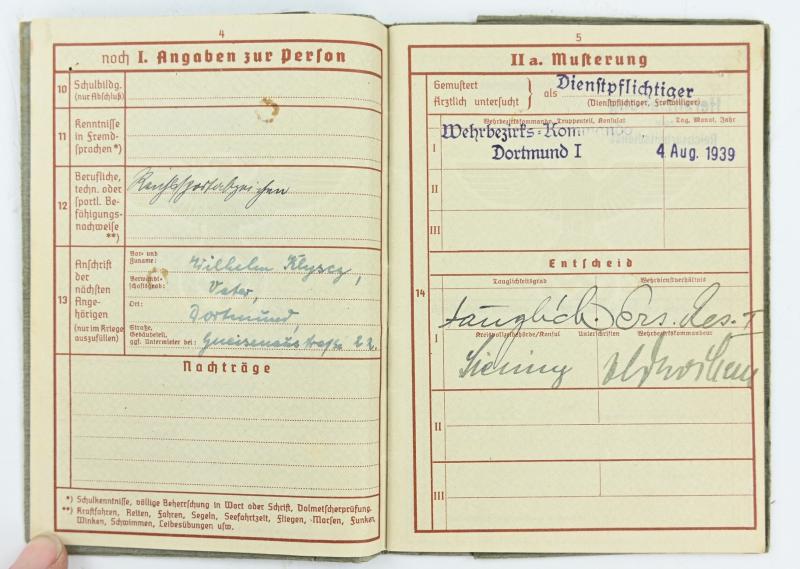 4
noch I. Angaben zur Person
10 Schulbildg.
(nur Abschluß)
11 Kenntnisse
in Fremd-
sprachen*)
12 Berufliche,
techn. oder
sportl. Be-
fähigungs-
nachweise
**)
Reichssportabzeichen
13 Anschrift
der
nächsten
Ange-
hörigen
(nur im Kriege
auszufüllen)
Vor- und
Zuname:
Wilhelm
Verwandt-
schaftsgrad:
Vater,
Ort:
Dortmund,
Straße,
Gebäudeteil,
ggf. Untermieter bei:
Gneisenaustraße 22.
Nachträge
*) Schulkenntnisse, völlige Beherrschung in Wort oder Schrift, Dolmetscherprüfung.
**) Kraftfahren, Reiten, Fahren, Segeln, Seefahrtzeit, Fliegen, Morsen, Funken,
Winken, Schwimmen, Leibesübungen usw.
5
II a. Musterung
Gemustert
Ärztlich untersucht
als Dienstpflichtiger
(Dienstpflichtiger, Freiwilliger)
Wehrbezirkskommando, Truppenteil, Konsulat
Tag, Monat, Jahr
I
Wehrbezirks-Kom
Dortmund I
4 Aug. 1939
II
III
Entscheid
14
Tauglichkeitsgrad
Wehrdienstverhältnis
tauglich. Ers. Res. I
I
Kreispolizeibehörde/Konsul
Unterschriften
Wehrbezirkskommandeur
II
III